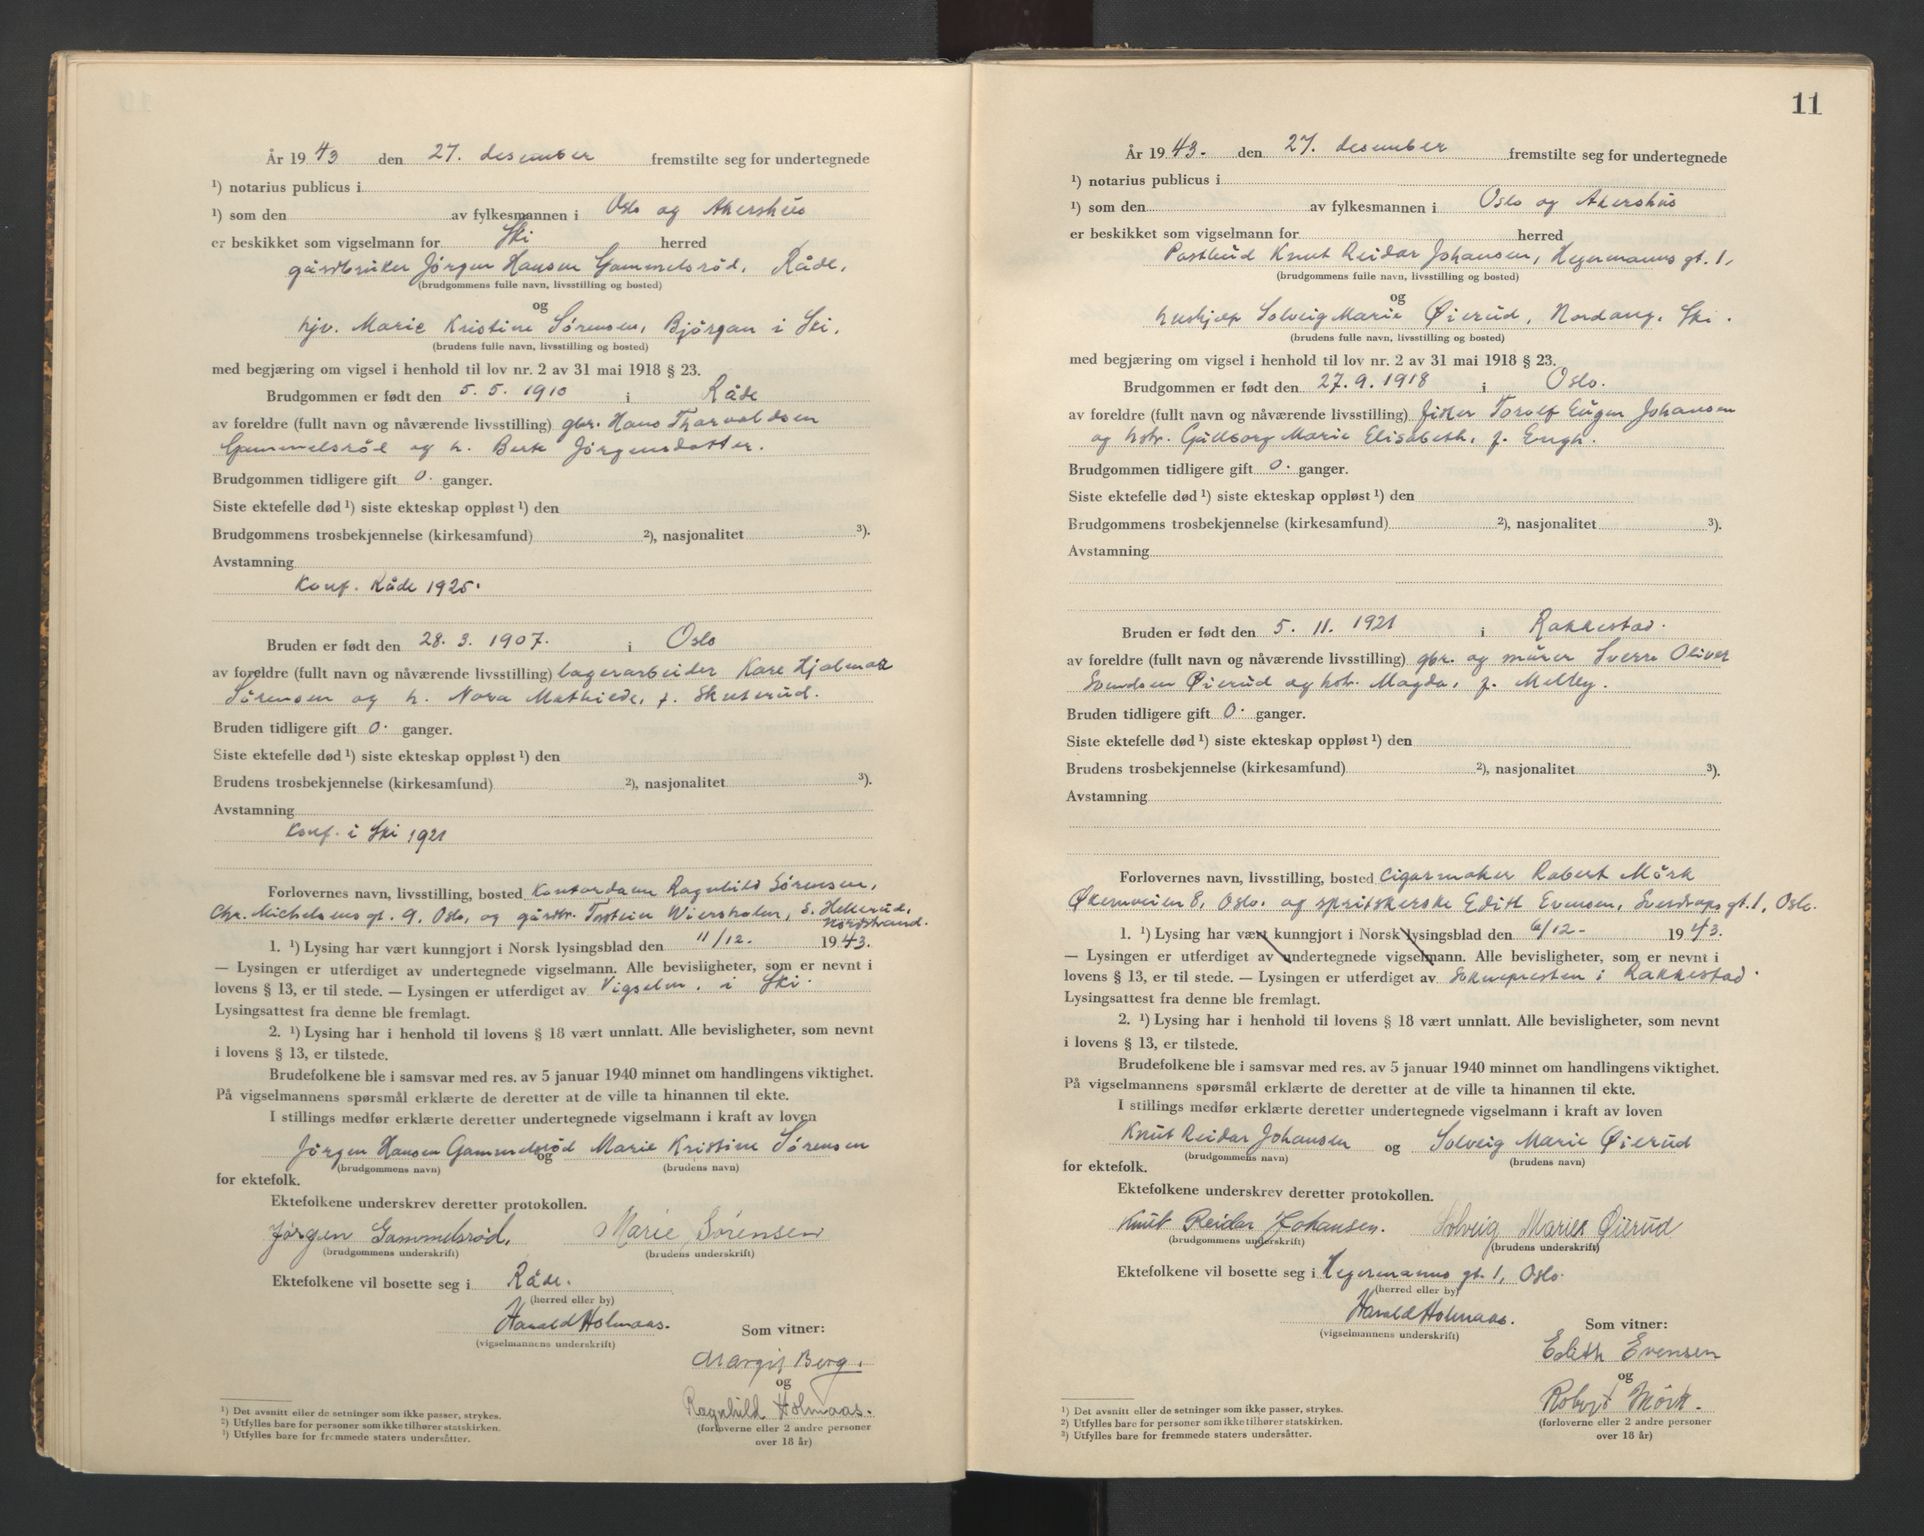 År 1943 den 27. desember fremstilte seg for undertegnede
¹) notarius publicus i
¹) som den av fylkesmannen i Oslo og Akershus
er beskikket som vigselmann for Ski herred
gårdbruker Jørgen Hansen Gammelsrød, Råde,
(brudgommens fulle navn, livsstilling og bosted)
og
hjv. Marie Kristine Sørensen, Bjørgan i Ski.
(brudens fulle navn, livsstilling og bosted)
med begjæring om vigsel i henhold til lov nr. 2 av 31 mai 1918 § 23.
Brudgommen er født den 5. 5. 1910 i Råde
av foreldre (fullt navn og nåværende livsstilling) gbr. Hans Thorvaldsen
Gammelsrød og h. Berte Jørgensdatter.
Brudgommen tidligere gift 0. ganger.
Siste ektefelle død ¹) siste ekteskap oppløst ¹) den
Brudgommens trosbekjennelse (kirkesamfund) ²), nasjonalitet ³).
Avstamning
Konf. Råde 1925.
Bruden er født den 28. 3. 1907. i Oslo
av foreldre (fullt navn og nåværende livsstilling) lagerarbeider Kare Hjalmar
Sørensen og h. Nora Mathilde, f. Skuterud.
Bruden tidligere gift 0. ganger.
Siste ektefelle død ¹) siste ekteskap oppløst ¹) den
Brudens trosbekjennelse (kirkesamfund) ²), nasjonalitet ³).
Avstamning
Konf. i Ski 1921
Forlovernes navn, livsstilling, bosted Kontordame Ragnhild Sørensen,
Chr. Michelsens gt. 9, Oslo, og gårdbr. Torstein Wiersholm, S. Hellerud,
Nordstrand.
1. ¹) Lysing har vært kunngjort i Norsk lysingsblad den 11/12. 1943.
— Lysingen er utferdiget av undertegnede vigselmann. Alle bevisligheter, som er nevnt i
lovens § 13, er til stede. — Lysingen er utferdiget av Vigselm. i Ski.
Lysingsattest fra denne ble fremlagt.
2. ¹) Lysing har i henhold til lovens § 18 vært unnlatt. Alle bevisligheter, som nevnt
i lovens § 13, er tilstede.
Brudefolkene ble i samsvar med res. av 5 januar 1940 minnet om handlingens viktighet.
På vigselmannens spørsmål erklærte de deretter at de ville ta hinannen til ekte.
I stillings medfør erklærte deretter undertegnede vigselmann i kraft av loven
Jørgen Hansen Gammelsrød og Marie Kristine Sørensen
(brudgommens navn) (brudens navn)
for ektefolk.
Ektefolkene underskrev deretter protokollen.
Jørgen Gammelsrød. Marie Sørensen
(brudgommens underskrift) (brudens underskrift)
Ektefolkene vil bosette seg i Råde.
(herred eller by)
Harald Holmaas.
(vigselmannens underskrift)
Som vitner:
Margit Berg.
og
Ragnhild Holmaas.
(forloverne eller 2 andre personer
over 18 år)
¹) Det avsnitt eller de setninger som ikke passer, strykes.
²) Utfylles bare for personer som ikke tilhører statskirken.
³) Utfylles bare for fremmede staters undersåtter.
11
År 1943. den 27. desember fremstilte seg for undertegnede
¹) notarius publicus i
¹) som den av fylkesmannen i Oslo og Akershus
er beskikket som vigselmann for herred
Postbud Knut Reidar Johansen, Hegermanns gt. 1,
(brudgommens fulle navn, livsstilling og bosted)
og
hushjelp Solveig Marie Øierud, Nordang. Ski.
(brudens fulle navn, livsstilling og bosted)
med begjæring om vigsel i henhold til lov nr. 2 av 31 mai 1918 § 23.
Brudgommen er født den 27. 9. 1918 i Oslo.
av foreldre (fullt navn og nåværende livsstilling) fisker Torolf Eugen Johansen
og hstr. Gudborg Marie Elisabeth, f. Engh.
Brudgommen tidligere gift 0. ganger.
Siste ektefelle død ¹) siste ekteskap oppløst ¹) den
Brudgommens trosbekjennelse (kirkesamfund) ²), nasjonalitet ³).
Avstamning
Bruden er født den 5. 11. 1921 i Rakkestad.
av foreldre (fullt navn og nåværende livsstilling) gbr. og murer Sverre Oliver
Svendsen Øierud og hstr. Magda, f. Melleby.
Bruden tidligere gift 0. ganger.
Siste ektefelle død ¹) siste ekteskap oppløst ¹) den
Brudens trosbekjennelse (kirkesamfund) ²), nasjonalitet ³).
Avstamning
Forlovernes navn, livsstilling, bosted Cigarmaker Robert Mörk
Økernveien 8, Oslo. og Edith Evensen, Sverdrups gt. 1, Oslo.
1. ¹) Lysing har vært kunngjort i Norsk lysingsblad den 6/12- 1943.
— Lysingen er utferdiget av undertegnede vigselmann. Alle bevisligheter, som er nevnt i
lovens § 13, er til stede. — Lysingen er utferdiget av Soknepresten i Rakkestad.
Lysingsattest fra denne ble fremlagt.
2. ¹) Lysing har i henhold til lovens § 18 vært unnlatt. Alle bevisligheter, som nevnt
i lovens § 13, er tilstede.
Brudefolkene ble i samsvar med res. av 5 januar 1940 minnet om handlingens viktighet.
På vigselmannens spørsmål erklærte de deretter at de ville ta hinannen til ekte.
I stillings medfør erklærte deretter undertegnede vigselmann i kraft av loven
Knut Reidar Johansen og Solveig Marie Øierud
(brudgommens navn) (brudens navn)
for ektefolk.
Ektefolkene underskrev deretter protokollen.
Knut Reidar Johansen. Solveig Marie Øierud
(brudgommens underskrift) (brudens underskrift)
Ektefolkene vil bosette seg i Hegermanns gt. 1, Oslo.
(herred eller by)
Harald Holmaas.
(vigselmannens underskrift)
Som vitner:
Edith Evensen
og
Robert Mörk.
(forloverne eller 2 andre personer
over 18 år)
¹) Det avsnitt eller de setninger som ikke passer, strykes.
²) Utfylles bare for personer som ikke tilhører statskirken.
³) Utfylles bare for fremmede staters undersåtter.